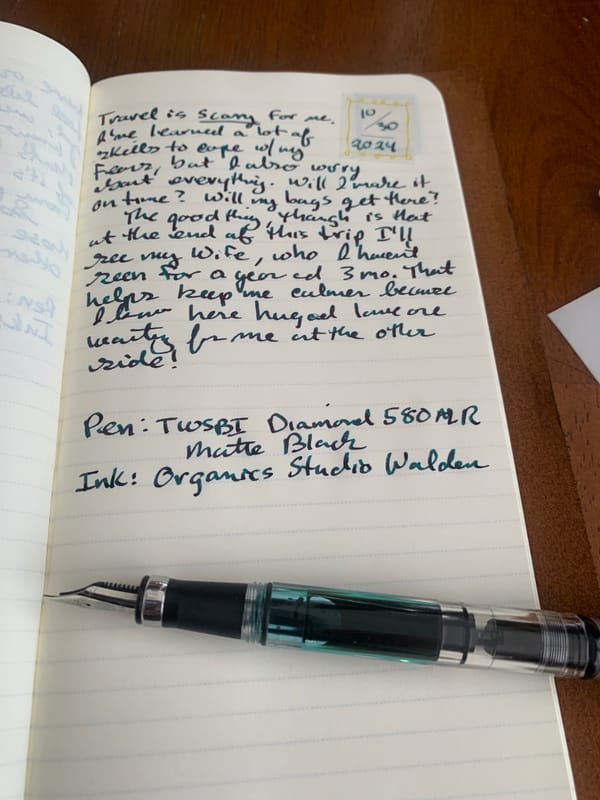 Travel is scary for me.
I've learned a lot of
skills to cope w/ my
fears, but I also worry
about everything. Will I make it
on time? Will my bags get there?
The good thing, though is that
at the end of this trip I'll
see my wife, who I haven't
seen for a year and 3 mo. That
helps keep me calmer because
I know her hug and love are
waiting for me at the other
side!
10/30
2024
Pen: TWSBI Diamond 580 ALR
Matte Black
Ink: Organics Studio Walden
Pen:
Ink: